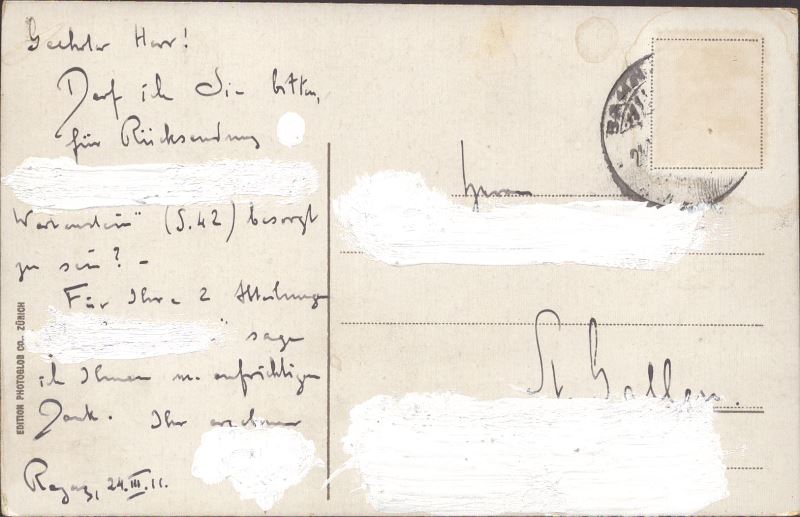 Geehrter Herr!
Darf ich Sie bitten,
für Rücksendung
Wartenstein" (S. 42) besorgt
zu sein? –
Für Ihre 2 Abteilungen
" sage
ich Ihnen m. aufrichtigen
Dank. Ihr ergebener
Ragaz, 24. III. 11.
EDITION PHOTOGLOB CO., ZÜRICH
Herrn
St. Gallen.